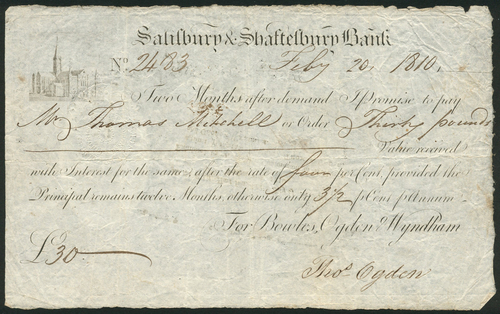 Salisbury & Shaftesbury Bank
No. 2483 Feby 20, 1810,
Two Months after demand I promise to pay
Mr Thomas Mitchell or Order Thirty pounds
Value received
with Interest for the same, after the rate of four pr Cent, provided the
Principal remains twelve Months, otherwise only 3½ pr Cent pr Annum
For Bowles, Ogden & Wyndham
£30
Thos Ogden